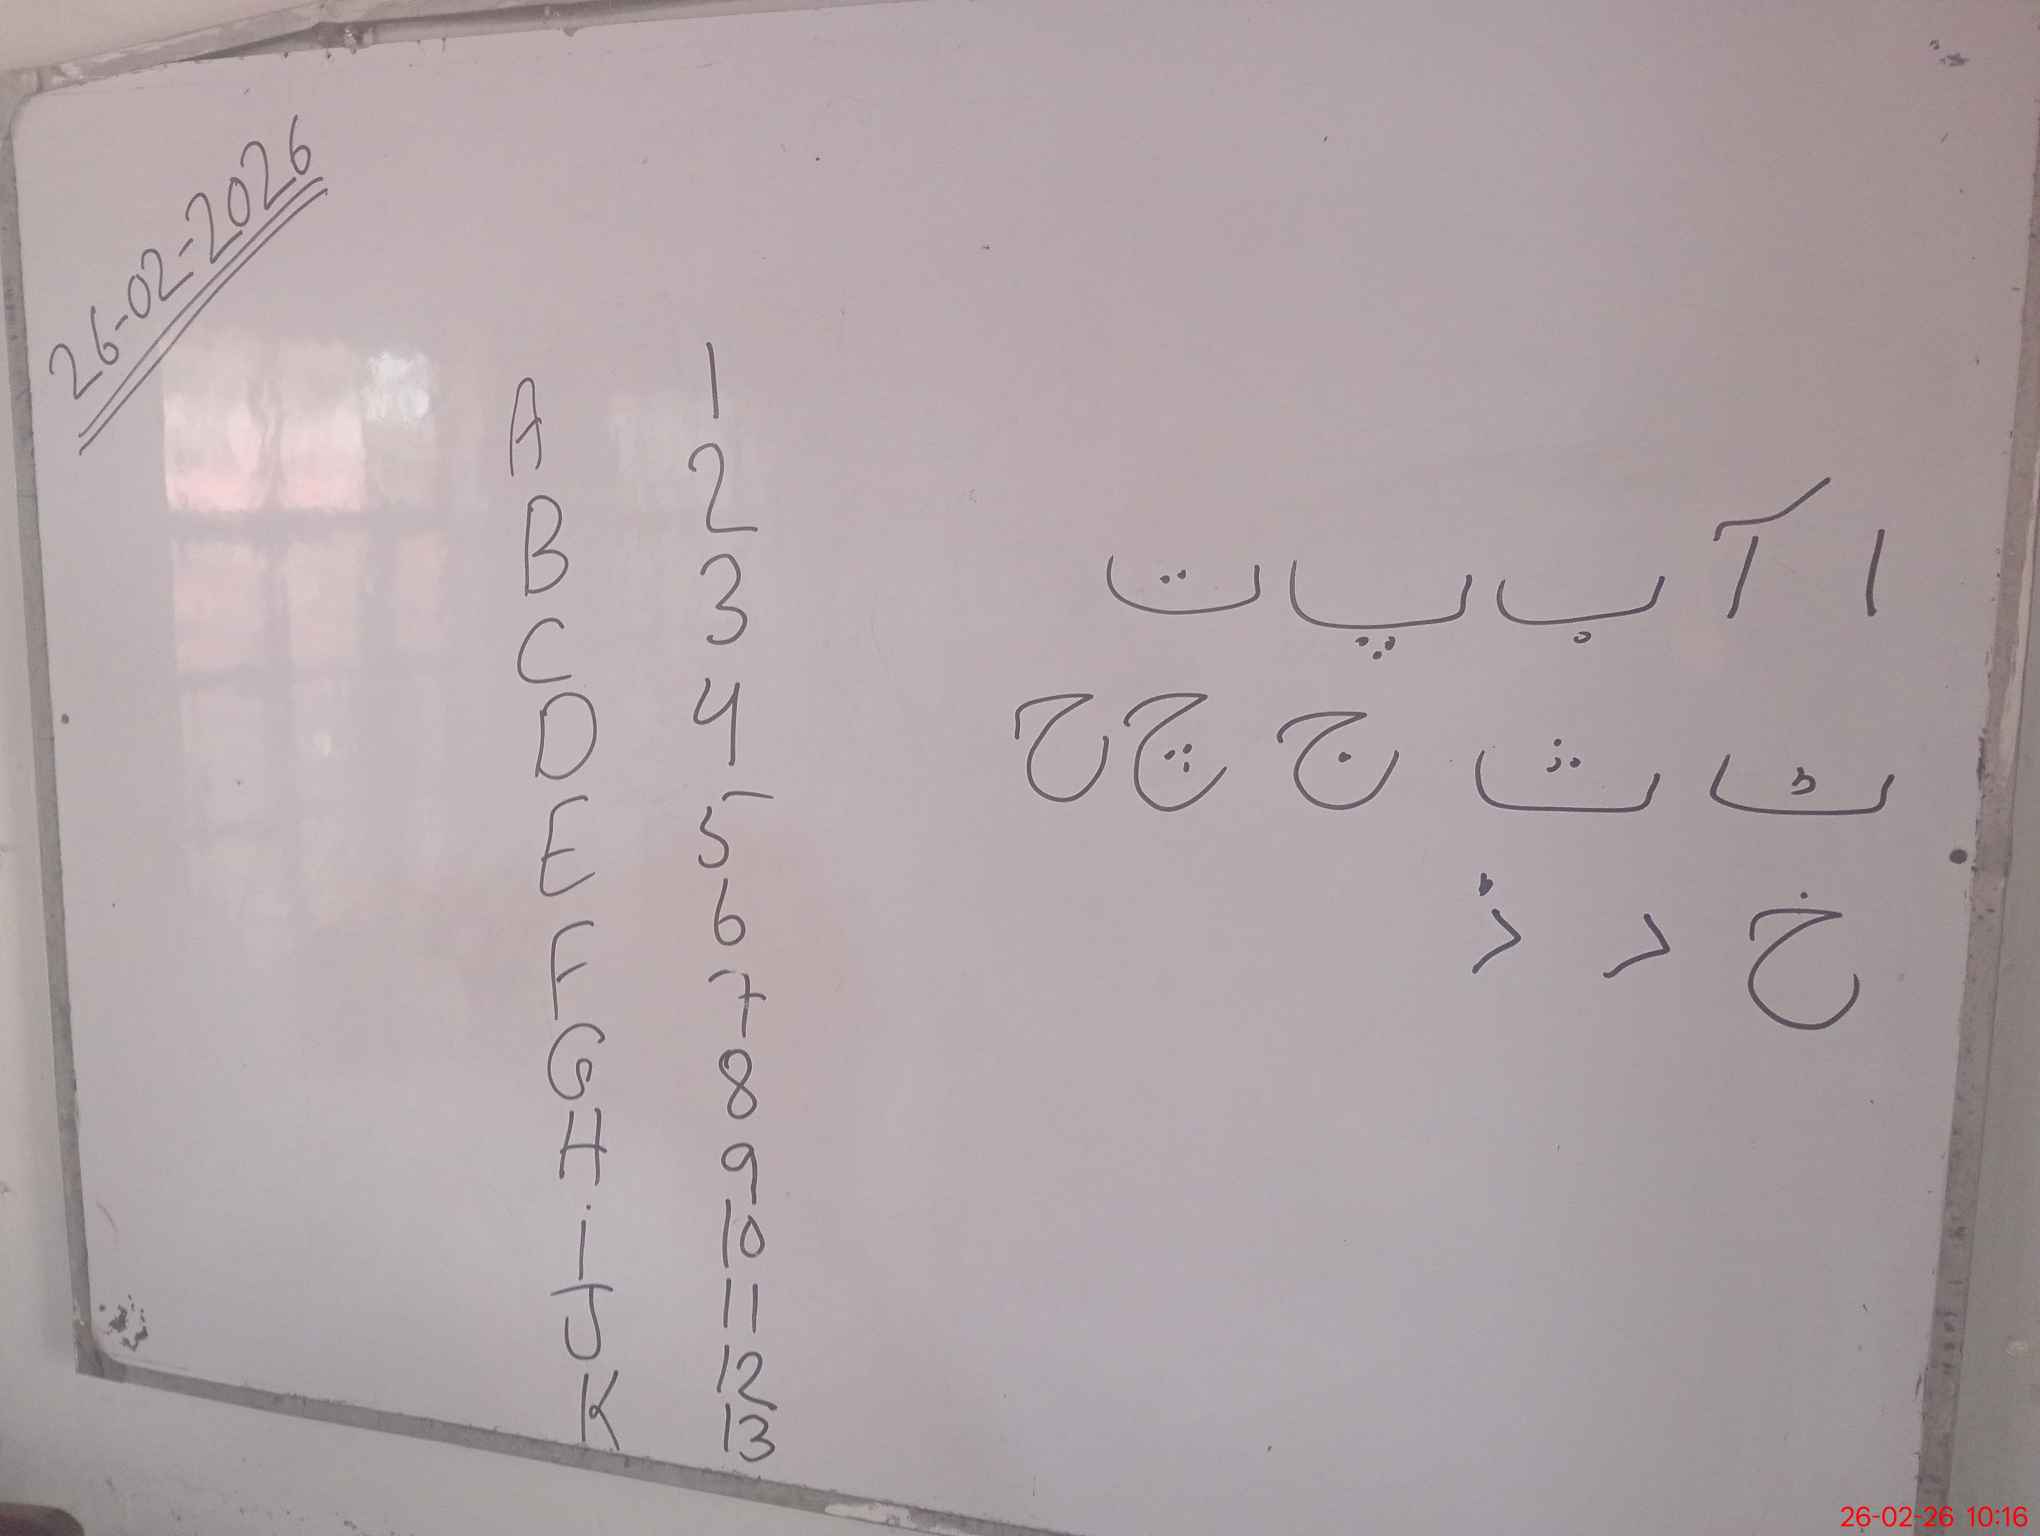 26-02-2026
A 1
B 2
C 3
D 4
E 5
F 6
G 7
H 8
i 9
J 10
K 11
12
13
ا آ ب پ ت
ٹ ث ج چ ح
خ د ڈ
26-02-26 10:16